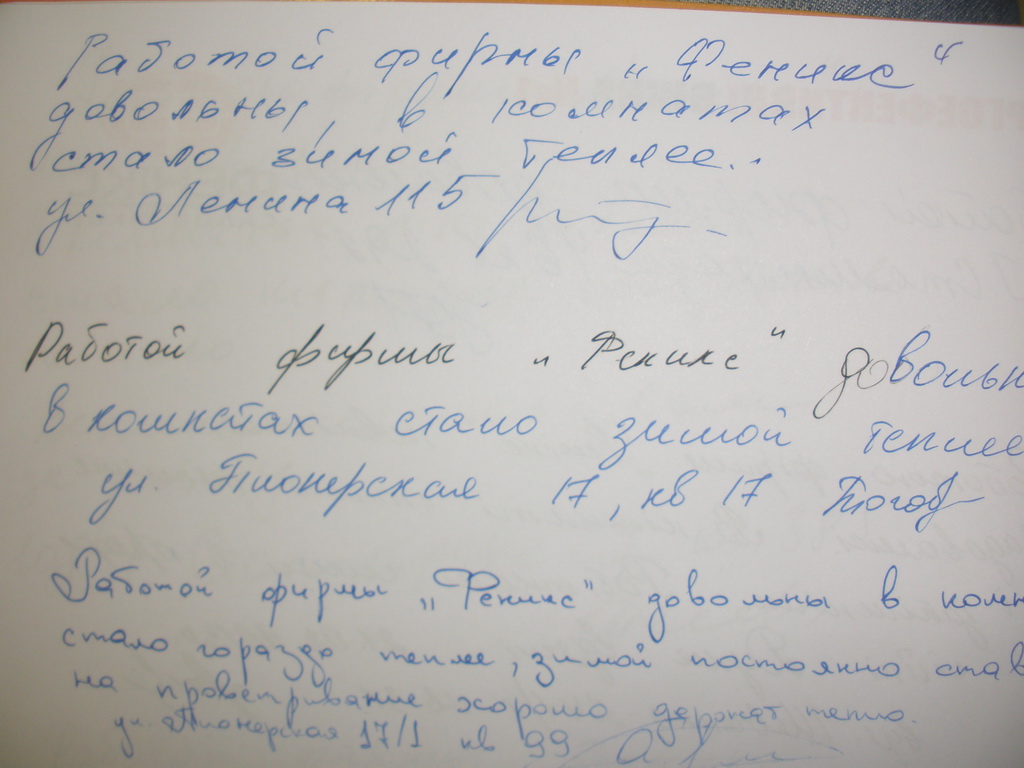 Работой фирмы „Феникс“
довольны, в комнатах
стало зимой теплее..
ул. Ленина 115
Работой фирмы „Феникс" довольн
в комнатах стало зимой теплее
ул. Пионерская 17, кв 17
Работой фирмы „Феникс" довольны в комн
стало гораздо теплее, зимой постоянно став
на проветривание хорошо держат тепло.
ул. Пионерская 17/1 кв 99